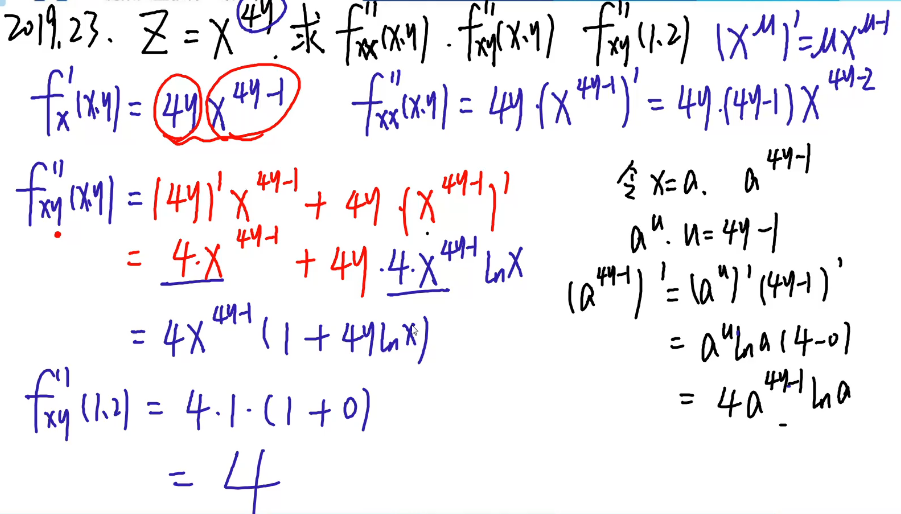 2019.23. Z = x^{4y}. 求 f''_{xx}(x.y). f''_{xy}(x.y) f''_{xy}(1.2) (x^μ)' = μx^{μ-1}
f'_x(x.y) = 4y x^{4y-1} f''_{xx}(x.y) = 4y·(x^{4y-1})' = 4y·(4y-1)x^{4y-2}
f''_{xy}(x.y) = (4y)' x^{4y-1} + 4y·(x^{4y-1})'
= 4·x^{4y-1} + 4y·4·x^{4y-1} lnx
= 4x^{4y-1}(1 + 4ylnx)
f''_{xy}(1.2) = 4·1·(1+0)
= 4
令 x=a. a^{4y-1}
a^u. u=4y-1
(a^{4y-1})' = (a^u)'(4y-1)'
= a^u lna(4-0)
= 4a^{4y-1} lna